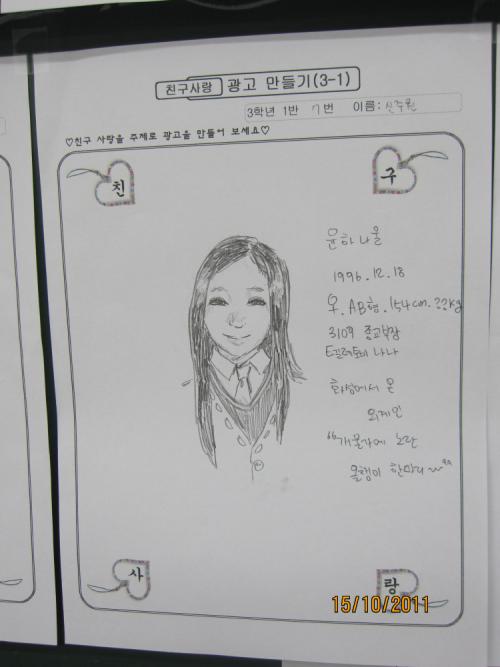 친구사랑 광고 만들기(3-1)
3학년 1반 7번 이름: 신주원
♡친구 사랑을 주제로 광고을 만들어 보세요♡
친 구
윤하나울
1996.12.18
우.AB형.154cm.??kg
3109 종교부장
텔레토비 나나
화성에서 온
외계인
“개울가에 노란
올챙이 한마리~”
사 랑
15/10/2011